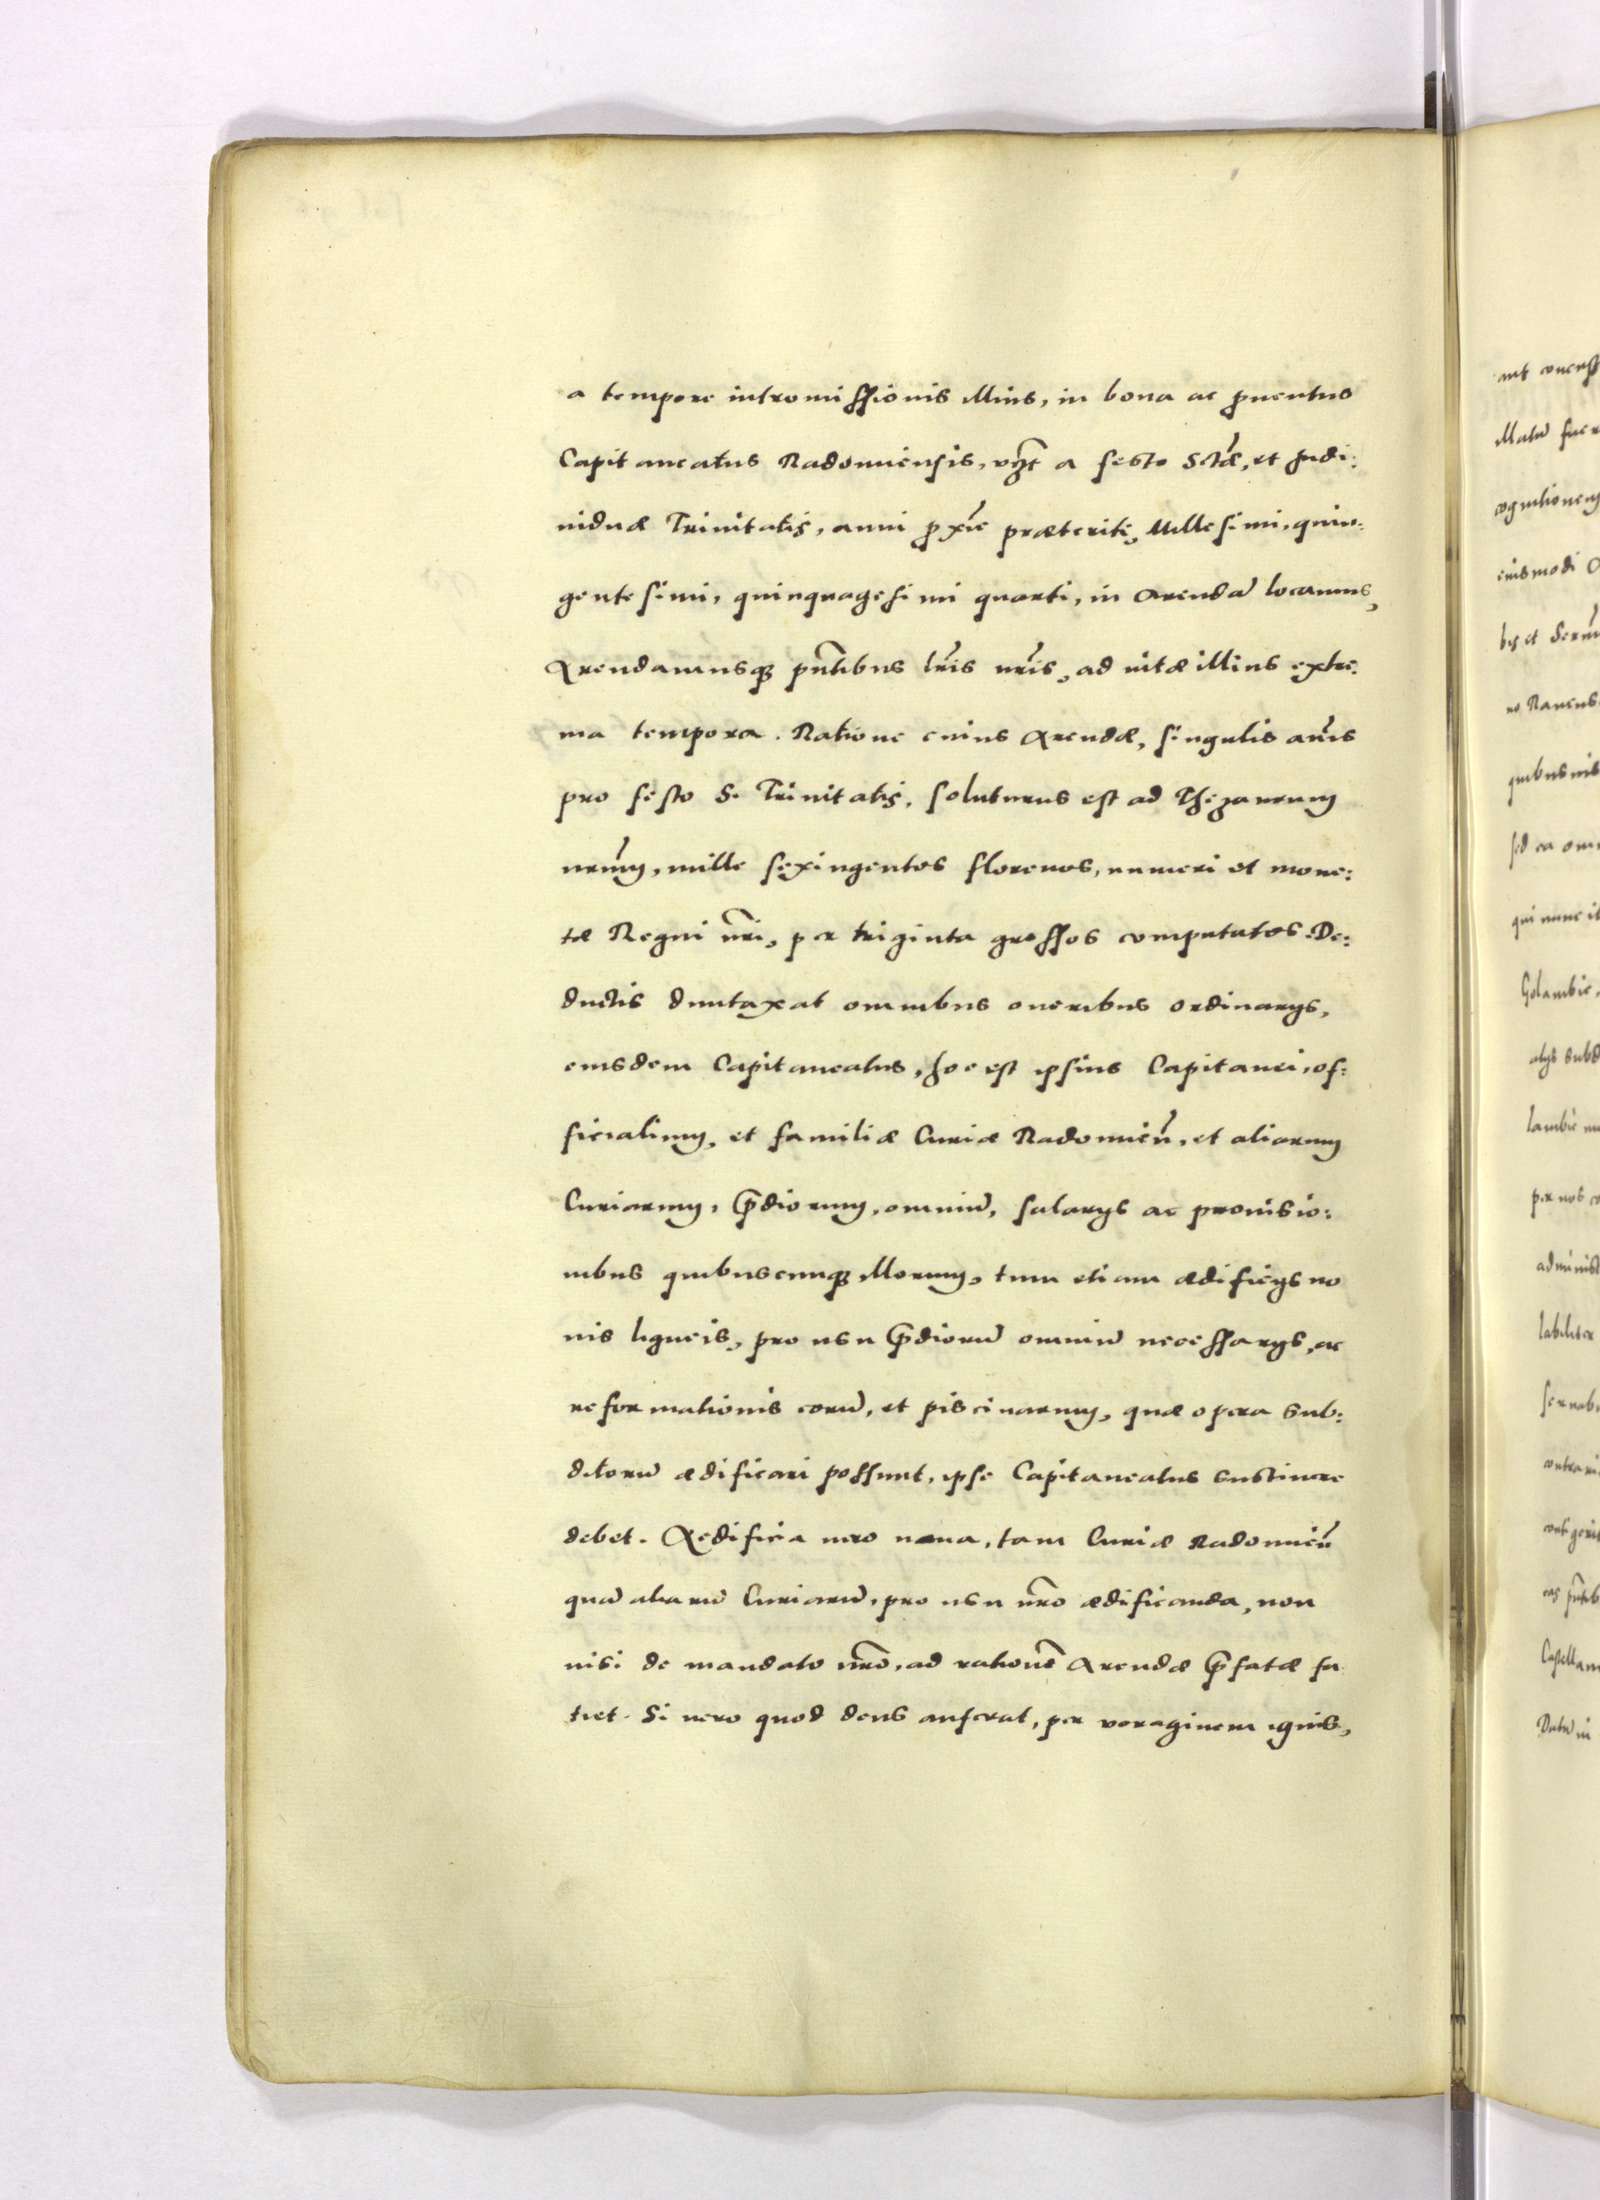 a tempore intromissionis illius, in bona ac ꝓuentus
Capitaneatus Radomiensis, vꝫt a festo Sctæ, et Indi:
uiduæ Trinitatis, anni ꝓxīe præteriti, Millesimi, quin:
gentesimi, quinquagesimi quarti, in Arendā locamus,
Arendamusqꝫ pn̄tibus lr̄is nr̄is, ad uitæ illius extre:
ma tempora. Ratione cuius Arendæ, singulis annis
pro festo S. Trinitatis, soluturus est ad Thezaurum
nr̄um, mille sexingentos florenos, numeri et mone:
tæ Regni nr̄i, per triginta grossos computatos. De:
ductis duntaxat omnibus oneribus ordinarys,
eiusdem Capitaneatus, hoc est ipsius Capitanei, of:
ficialium, et familiæ Curiæ Radomień, et aliarum
Curiarum, p̄diorum, omniū, salarys ac prouisio:
nibus quibuscunqꝫ illorum, tum etiam ædificys no
uis ligneis, pro usu p̄diorū omniū necessarys, ac
reformationis eorū, et piscinarum, quæ opera sub:
ditorū ædificari possunt, ipse Capitaneatus sustinere
debet. Aedificia uero noua, tam Curiæ Radomień
quā aliarū Curiarū, pro usu nr̄o ædificanda, non
nisi de mandato nr̄o, ad rationē Arendæ p̄fatæ fa
tiet. Si uero quod deus auferat, per voraginem ignis,
ant
illatū
cognitionem
eiusmodi
no
quibus
sed ea
qui nunc
Golambie,
alys
per nos
labiliter
contra
Datū in